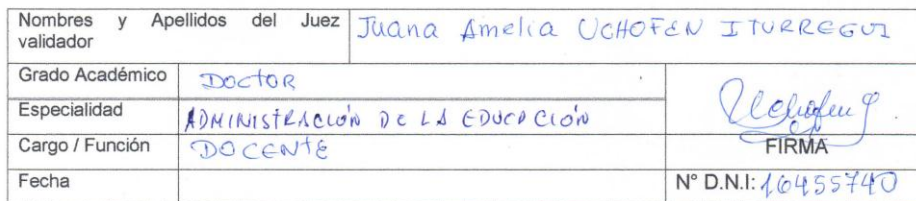 Nombres y Apellidos del Juez validador Juana Amelia UCHOFEN ITURREGUI
Grado Académico DOCTOR
Especialidad ADMINISTRACIÓN DE LA EDUCACIÓN
Cargo / Función DOCENTE
Uchofen
FIRMA
Fecha
N° D.N.I: 16455740